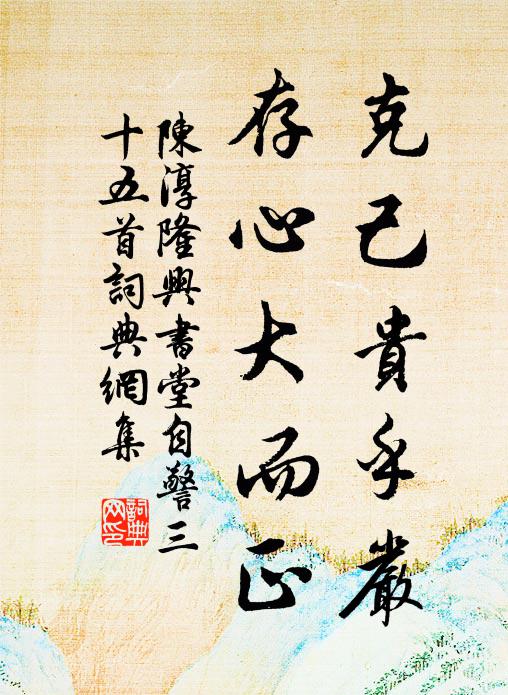 克己貴乎嚴
存心大而正
陳淳隆興書堂自警三
十五首詞典網集
詞典
网印